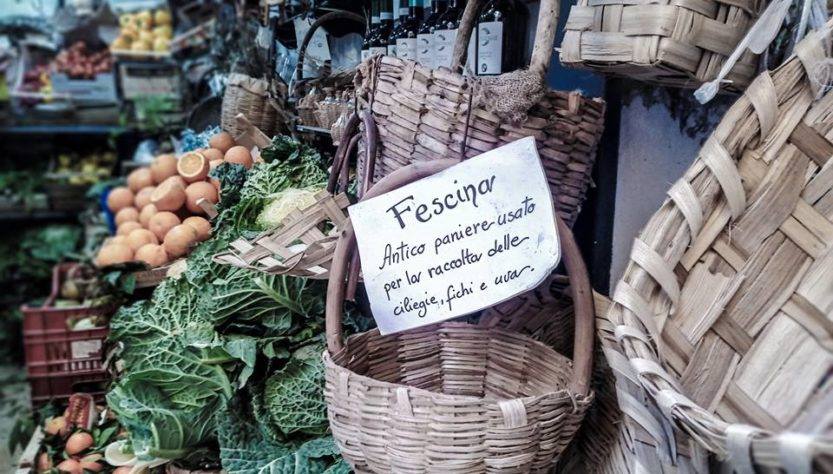 Fescina
Antico paniere usato
per la raccolta delle
ciliegie, fichi e uva.